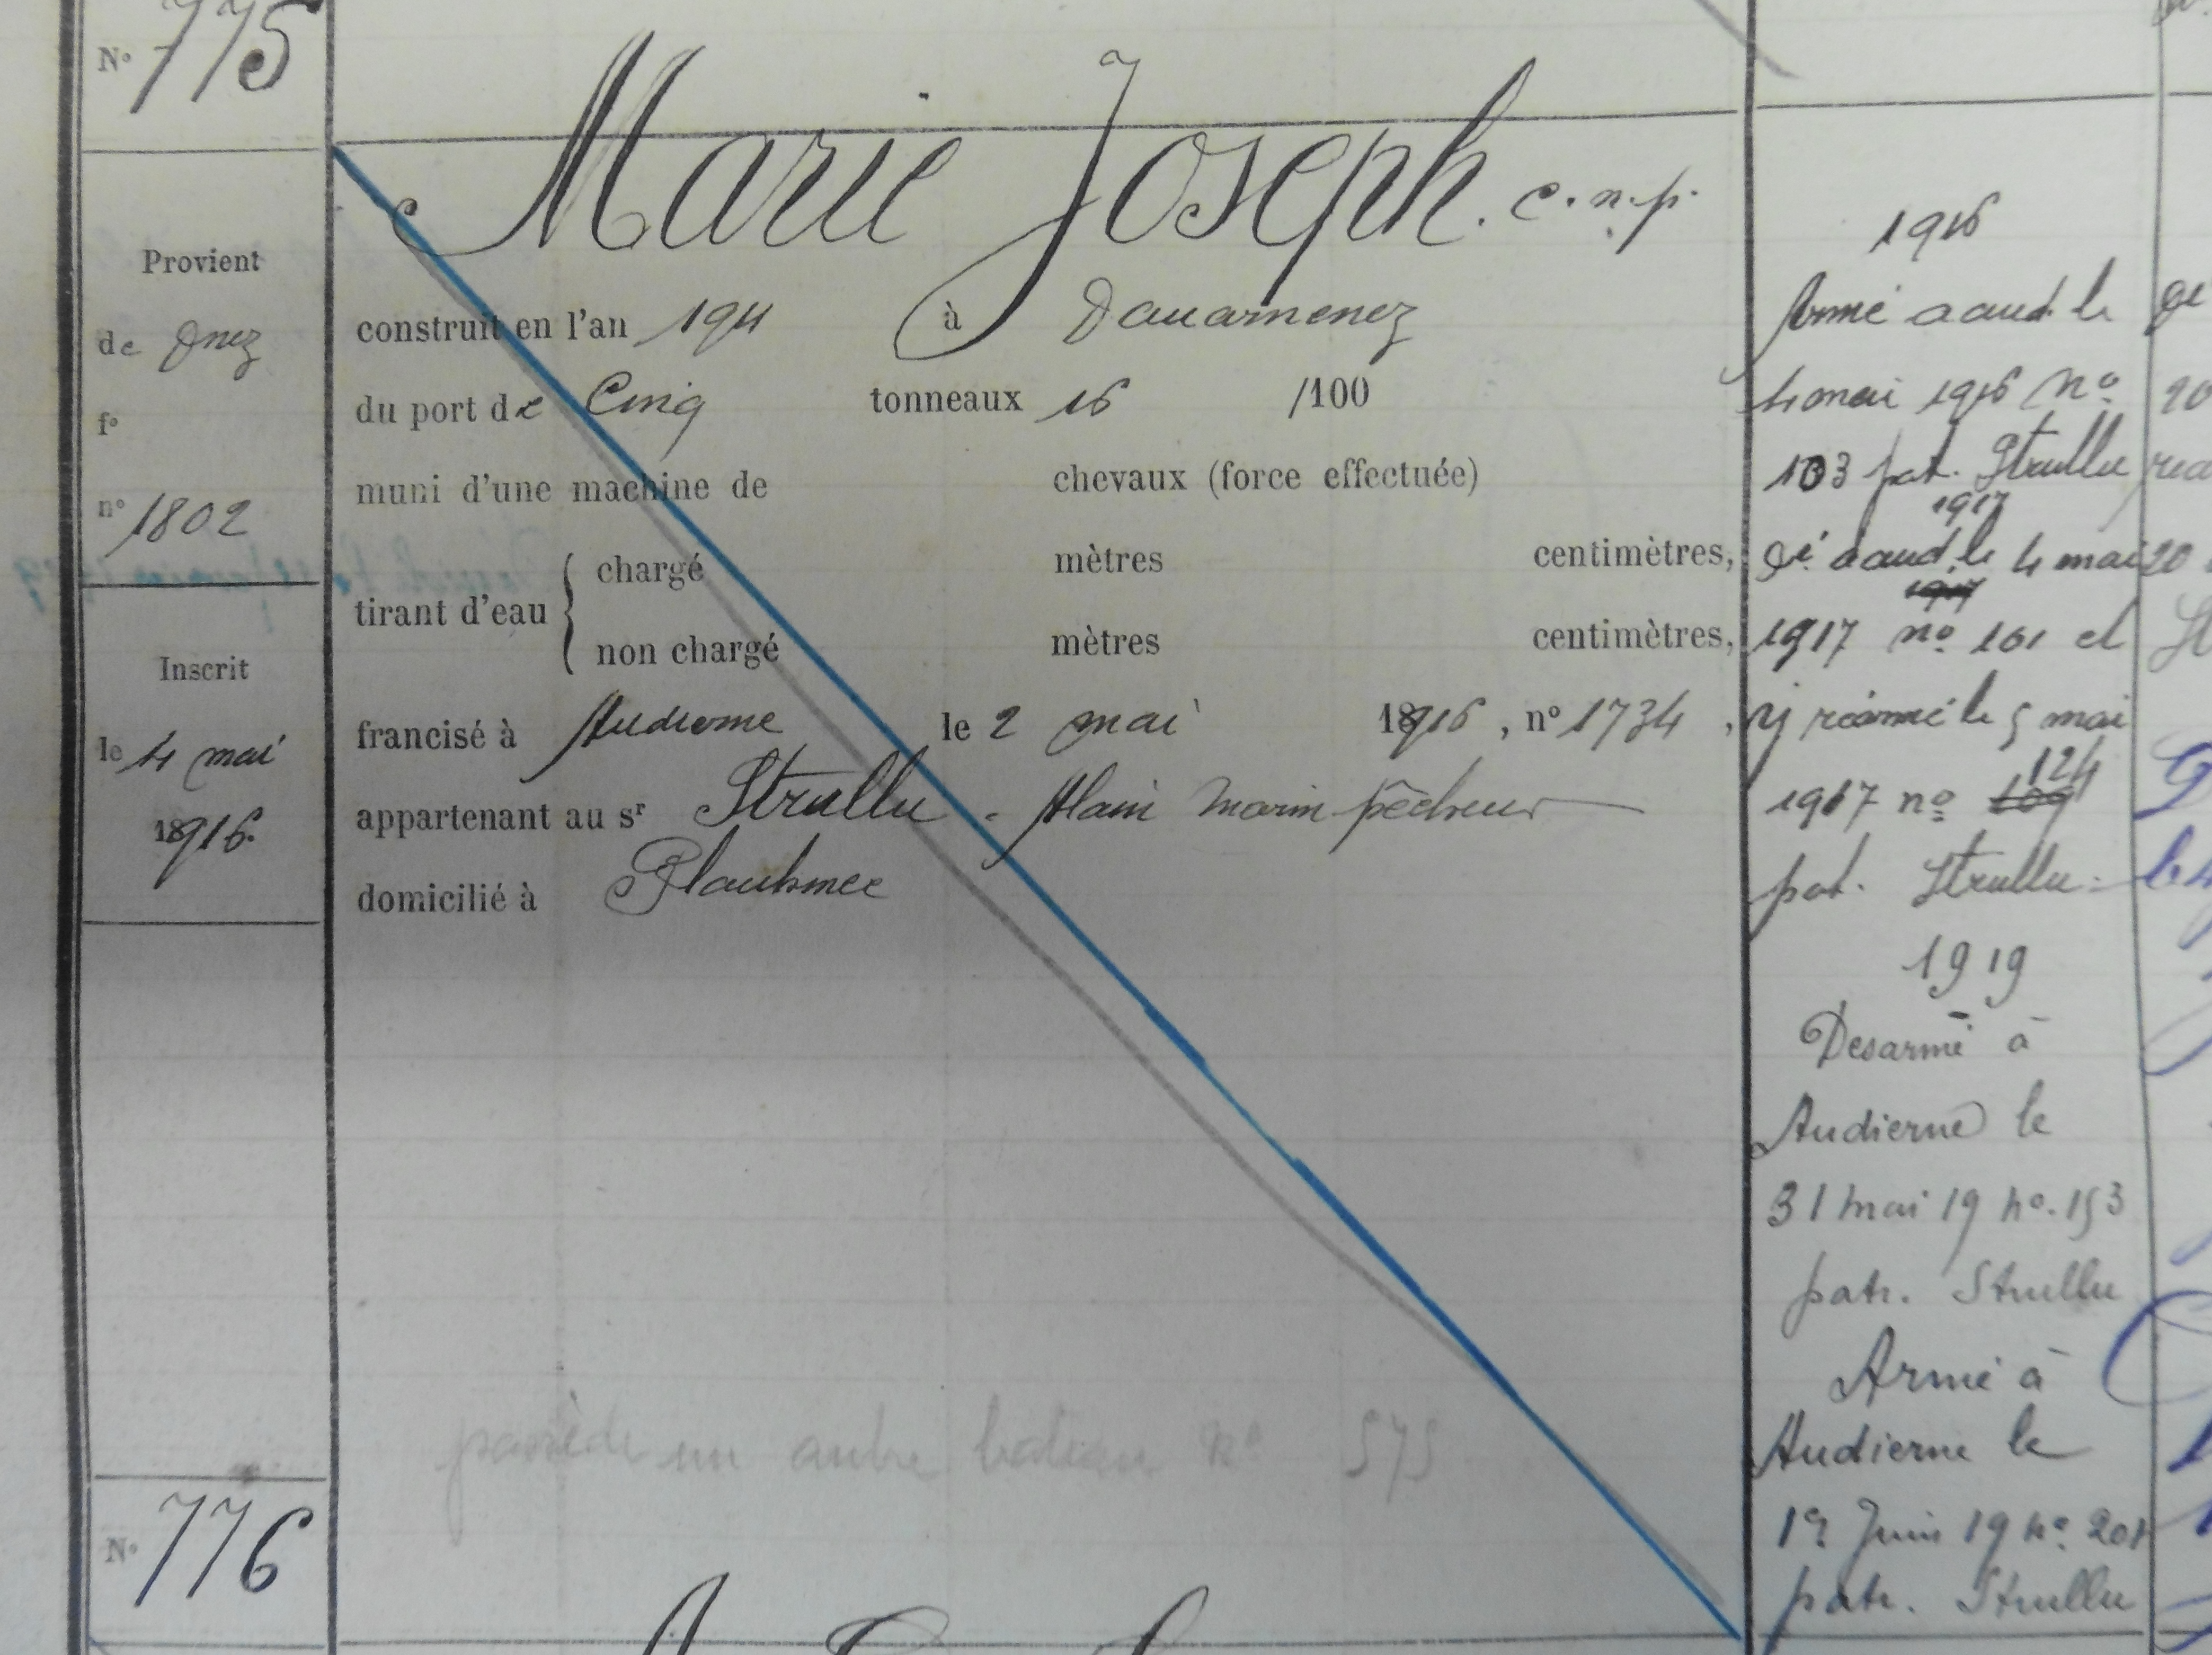 N° 775
Marie Joseph. c.n.p.
Provient
de Dnez
f°
n° 1802
Inscrit
le 4 mai
18916.
construit en l'an 1911 à Douarnenez
du port de Cinq tonneaux 16 /100
muni d'une machine de chevaux (force effectuée)
tirant d'eau { chargé mètres centimètres,
non chargé mètres centimètres,
francisé à Audierne le 2 mai 18916, n° 1734,
appartenant au sr Strullu - Alain marin pêcheur
domicilié à Plouhinec
possède un autre bateau n° 575
N° 776
1916
Armé a aud. le
4 mai 1916 n°
103 pat. Strullu
1917
Dé à aud. le 4 mai
1917
1917 n° 101 et
y réarmé le 5 mai
124
1917 n° 109
pat. Strullu.
1919
Desarmé à
Audierne le
31 mai 19 n°. 153
patr. Strullu
Armé à
Audierne le
1er Juin 19 n° 201
patr. Strullu